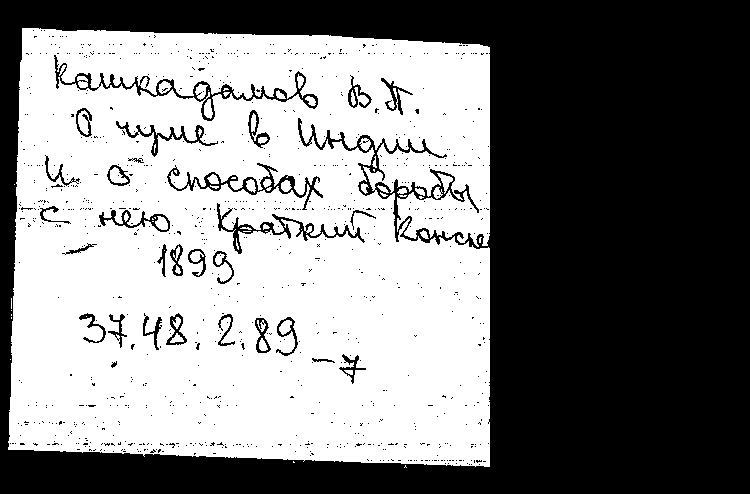 Кашкадамов В.П.
О чуме в Индии
и о способах борьбы
с нею. Краткий Конспе
1899
37.48.2.89
-7